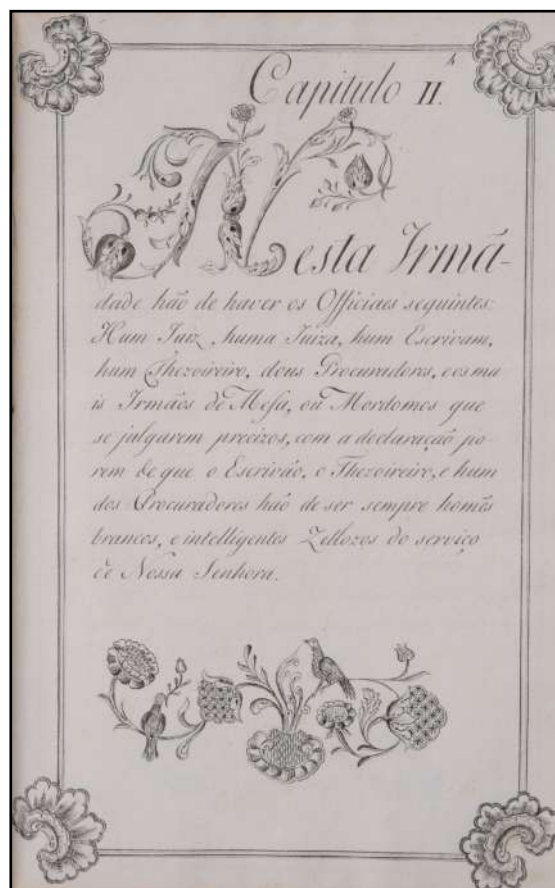 Capitulo II.
Nesta Irmã-
dade hão de haver os Officiaes seguintes:
Hum Juiz, huma Juiza, hum Escrivam,
hum Thezoireiro, dous Procuradores, e os ma
is Irmãos de Mesa, ou Mordomos que
se julgarem precizos, com a declaração po-
rem de que o Escrivão, o Thezoireiro, e hum
dos Procuradores hão de ser sempre homẽs
brancos, e intelligentes Zellozos do serviço
de Nossa Senhora.